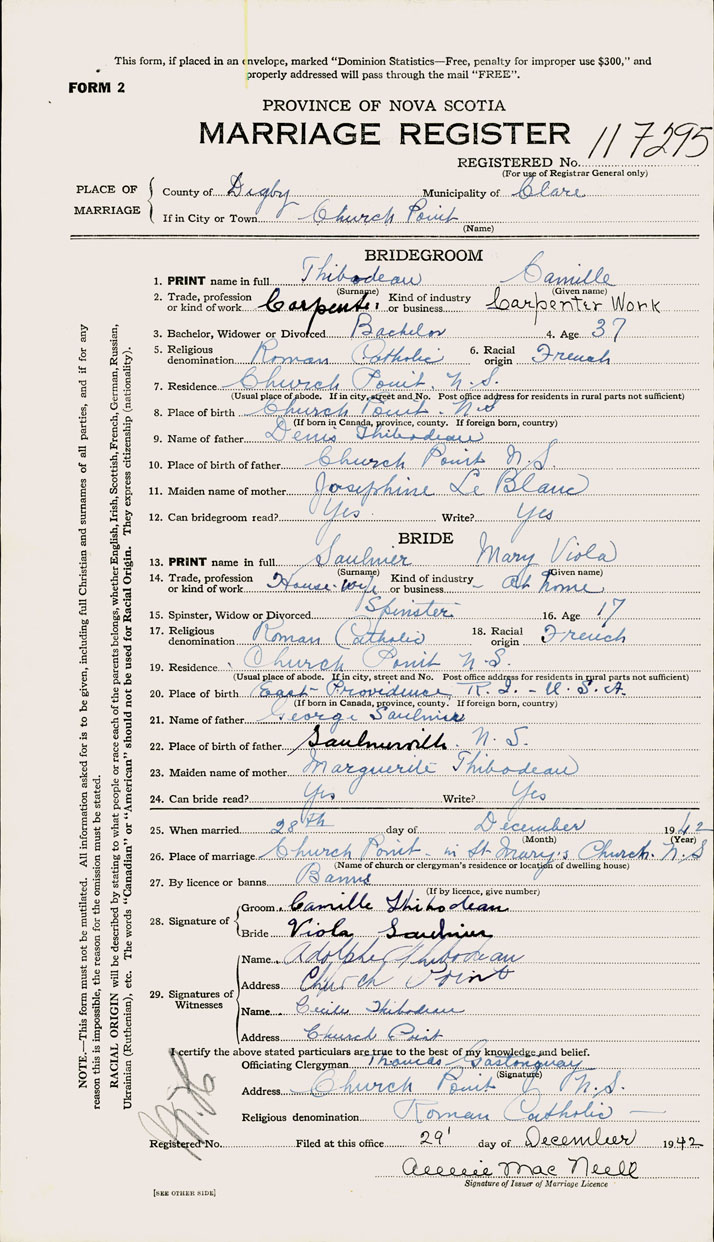 This form, if placed in an envelope, marked "Dominion Statistics—Free, penalty for improper use $300," and
properly addressed will pass through the mail "FREE".
FORM 2
PROVINCE OF NOVA SCOTIA
MARRIAGE REGISTER
117295
REGISTERED No.
(For use of Registrar General only)
PLACE OF MARRIAGE
County of Digby Municipality of Clare
If in City or Town Church Point
(Name)
BRIDEGROOM
1. PRINT name in full Thibodeau Camille
(Surname) (Given name)
2. Trade, profession or kind of work Carpenter Kind of industry or business Carpenter Work
3. Bachelor, Widower or Divorced Bachelor 4. Age 37
5. Religious denomination Roman Catholic 6. Racial origin French
7. Residence Church Point. N.S.
(Usual place of abode. If in city, street and No. Post office address for residents in rural parts not sufficient)
8. Place of birth Church Point. N.S
(If born in Canada, province, county. If foreign born, country)
9. Name of father Denis Thibodeau
10. Place of birth of father Church Point N.S.
11. Maiden name of mother Josephine Le Blanc
12. Can bridegroom read? Yes Write? Yes
BRIDE
13. PRINT name in full Saulnier Mary Viola
(Surname) (Given name)
14. Trade, profession or kind of work House-wife Kind of industry or business - At home
15. Spinster, Widow or Divorced Spinster 16. Age 17
17. Religious denomination Roman Catholic 18. Racial origin French
19. Residence Church Point N.S.
(Usual place of abode. If in city, street and No. Post office address for residents in rural parts not sufficient)
20. Place of birth East Providence, R.I. - U.S.A.
(If born in Canada, province, county. If foreign born, country)
21. Name of father George Saulnier
22. Place of birth of father Saulnierville. N.S.
23. Maiden name of mother Marguerite Thibodeau
24. Can bride read? Yes Write? Yes
25. When married 28th day of December 1942
(Month) (Year)
26. Place of marriage Church Point - in St Mary's Church. N.S
(Name of church or clergyman's residence or location of dwelling house)
27. By licence or banns Banns
(If by licence, give number)
28. Signature of
Groom Camille Thibodeau
Bride Viola Saulnier
29. Signatures of Witnesses
Name Adolphe Thibodeau
Address Church Point
Name Cecile Thibodeau
Address Church Point
I certify the above stated particulars are true to the best of my knowledge and belief.
Officiating Clergyman Thomas Gastonguay
(Signature)
Address Church Point N.S.
Religious denomination Roman Catholic
Registered No. Filed at this office 29 day of December 1942
Annie Mac Neill
Signature of Issuer of Marriage Licence
[SEE OTHER SIDE]
NOTE.—This form must not be mutilated. All information asked for is to be given, including full Christian and surnames of all parties, and if for any
reason this is impossible, the reason for the omission must be stated.
RACIAL ORIGIN will be described by stating to what people or race each of the parents belongs, whether English, Irish, Scottish, French, German, Russian,
Ukrainian (Ruthenian), etc. The words "Canadian" or "American" should not be used for Racial Origin. They express citizenship (nationality).